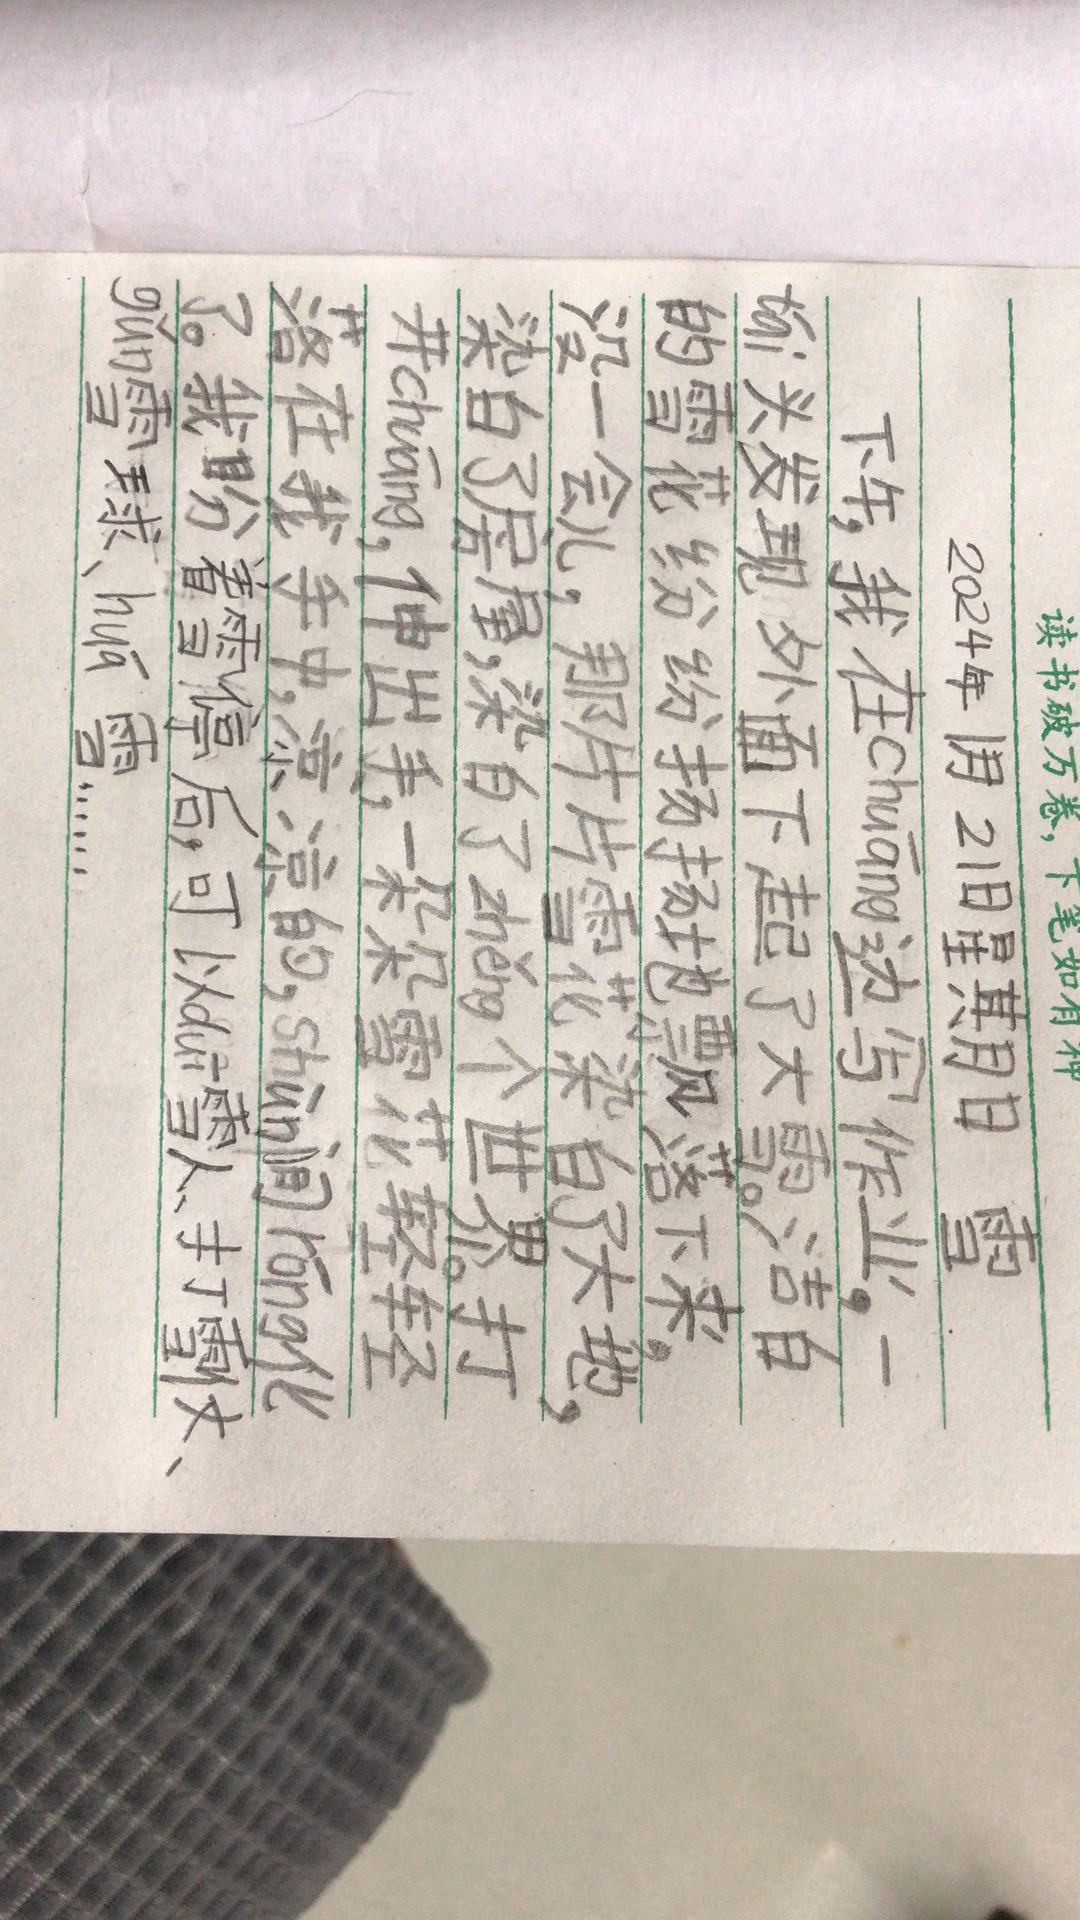 读书破万卷，下笔如有神
2024年1月21日星期日 雪
下午，我在chuāng边写作业，一
tái头发现外面下起了大雪。洁白
的雪花纷纷扬扬地飘落下来，
没一会儿，那片片雪花染白了大地，
染白了房屋，染白了zhěng个世界。打
开chuāng，伸出手，一朵朵雪花轻轻
落在我手中，凉凉的，shùn间róng化
了。我盼着雪停后，可以duī雪人、打雪仗、
gǔn雪球、huá雪……